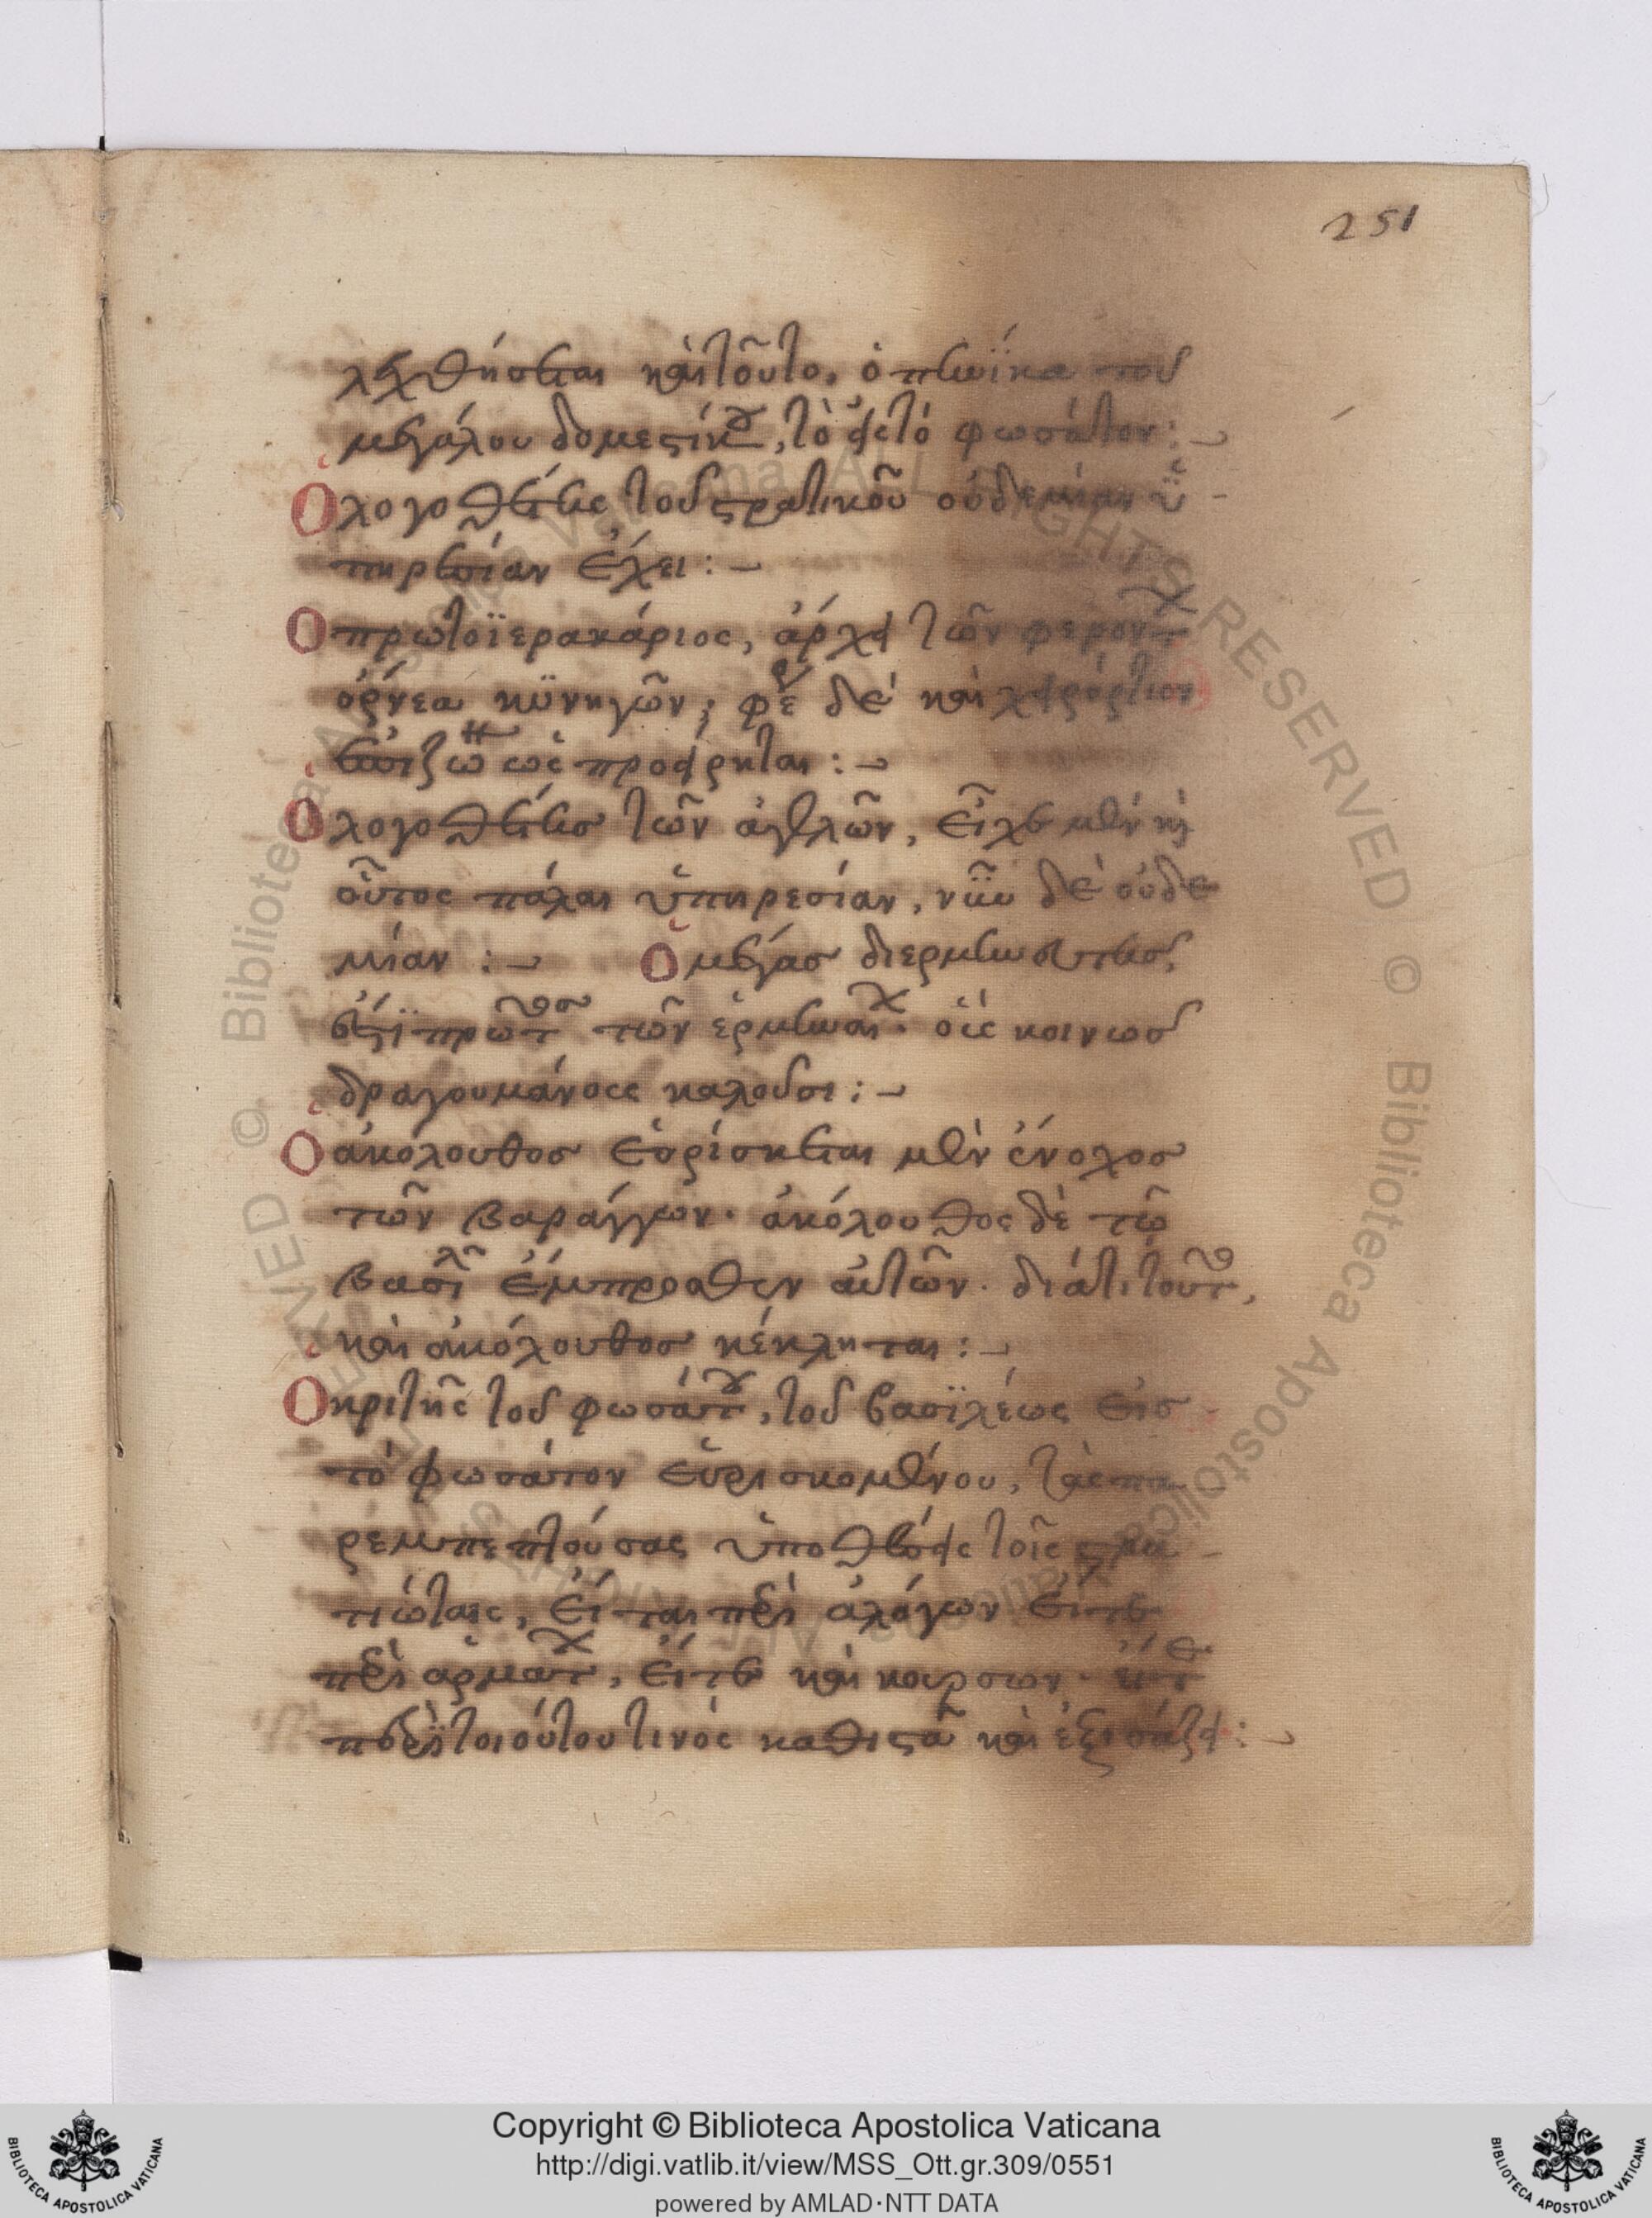 251
λεχθήσεται καὶ τοῦτο, ὁπηνίκα τοῦ
μεγάλου δομεστίκου, τὸ εἰς τὸ φωσάτον :-
Ὁ λογοθέτης τοῦ στρατιωτικοῦ οὐδεμίαν ὑ-
πηρεσίαν ἔχει :-
Ὁ πρωτοϊερακάριος, ἄρχει τῶν φερόντων
ὄρνεα κυνηγῶν, φέρει δὲ καὶ χειρόρτιον
ὡς προείρηται :-
Ὁ λογοθέτης τῶν ἀγελῶν, εἶχε μὲν καὶ
οὗτος πάλαι ὑπηρεσίαν, νῦν δὲ οὐδε
μίαν :- Ὁ μέγας διερμηνευτὴς,
ἐστὶ πρῶτος τῶν ἑρμηνέων. οὓς κοινῶς
δραγουμάνους καλοῦσι :-
Ὁ ἀκόλουθος εὑρίσκεται μὲν ἔνοχος
τῶν βαράγγων. ἀκόλουθος δὲ τῶ
βασιλεῖ ἔμπροσθεν αὐτῶν. διάτι τοῦτο,
καὶ ἀκόλουθος κέκληται :-
Ὁ κριτὴς τοῦ φωσάτου, τοῦ βασιλέως εἰς
τὸ φωσάτον εὑρισκομένου, τὰς πα
ρεμπιπτούσας ὑποθέσεις τοῖς στρα-
τιώταις, εἴται περὶ ἀλόγων εἴτε
περὶ ἁρμάτων, εἴτε καὶ κούρσων. εἴτε
περὶ τοιούτου τινὸς καθιστᾶ καὶ ἐξισάζει :-
Copyright © Biblioteca Apostolica Vaticana
http://digi.vatlib.it/view/MSS_Ott.gr.309/0551
powered by AMLAD·NTT DATA